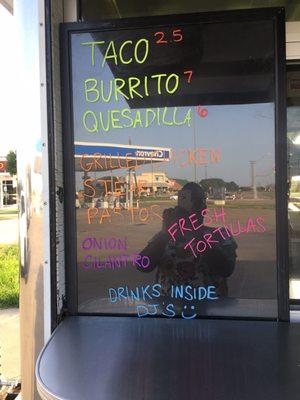 TACO 2.5
BURRITO 7
QUESADILLA 6
Chevron
GRILLED CHICKEN
STEAK
PASTOR
FRESH
TORTILLAS
ONION
CILANTRO
DRINKS INSIDE
DJ'S :)